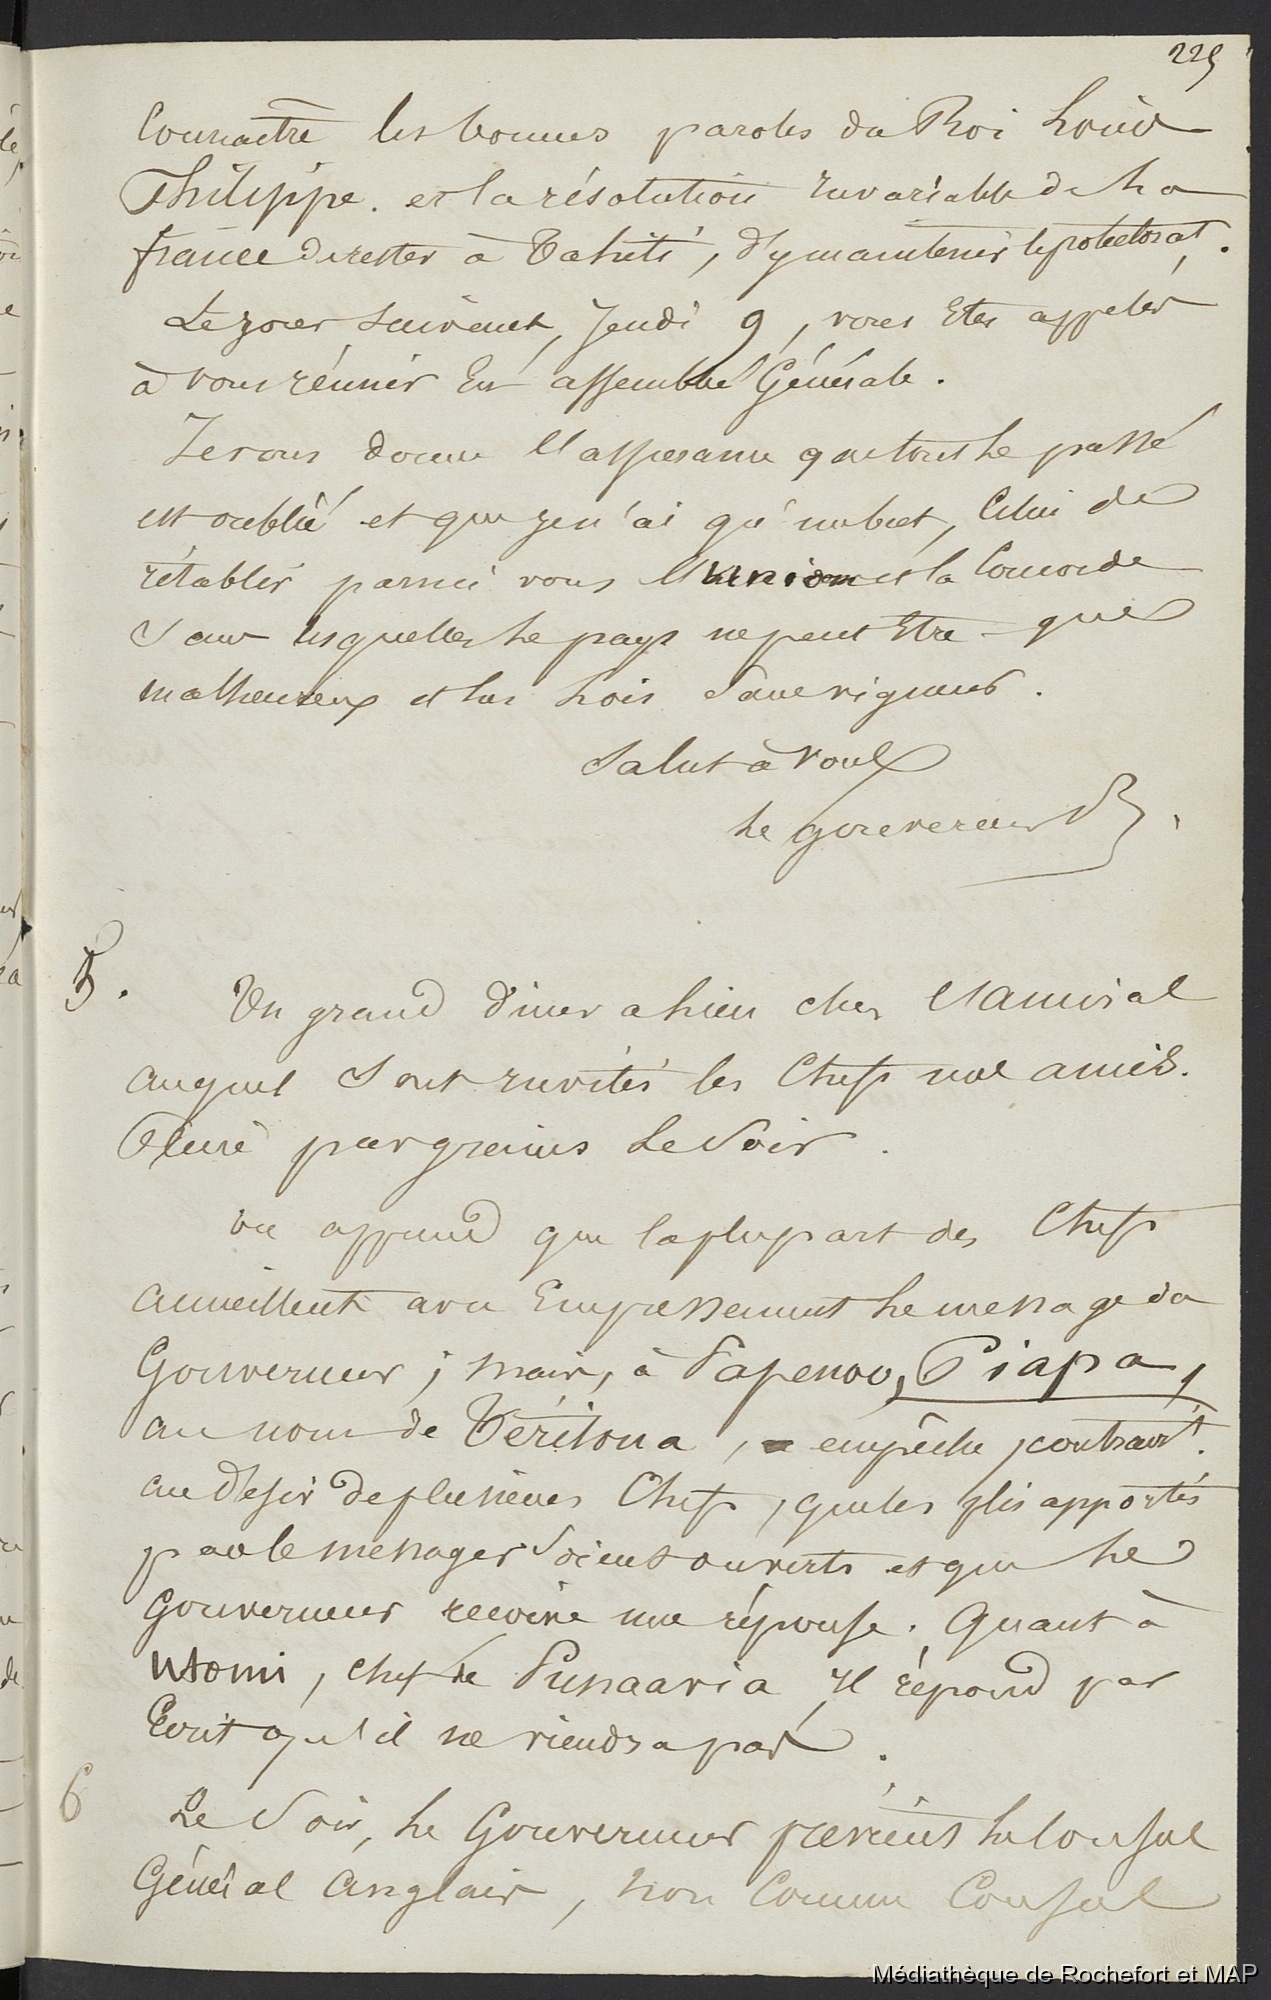 225
Connaître les bonnes paroles du Roi Louis
Philippe. et la résolution invariable de La
france de rester à Tahiti, d'y maintenir le protectorat.
Le jour suivant, Jeudi 9, vous Etes appelés
à vous réunir En assemblée Générale.
Je vous donne l'assurance que tout Le passé
est oublié et que je n'ai qu'un but, Celui de
rétablir parmi vous l'union et la Concorde
Sans lesquelles Le pays ne peut Etre que
malheureux et les Lois Sans vigueur.
Salut à Vous
Le gouverneur B.
5.
Un grand diner a lieu chez l'amiral
auquel Sont invités les Chefs nos amis.
Pluie par grains Le Soir.
on apprend que la plupart des Chefs
accueillent avec Empressement Le message du
Gouverneur; mais, à Papenoo, Piapa,
au nom de Téritoua, empêche, contrairt.
au désir de plusieurs Chefs, que les plis apportés
par le messager Soient ouverts et que Le
Gouverneur reçoive une réponse. Quant à
Utomi, chef de Punaavia, Il répond par
Ecrit qu'il ne viendra pas.
6
Le Soir, Le Gouverneur prévient le Consul
Général Anglais, Non Comme Consul
Médiathèque de Rochefort et MAP